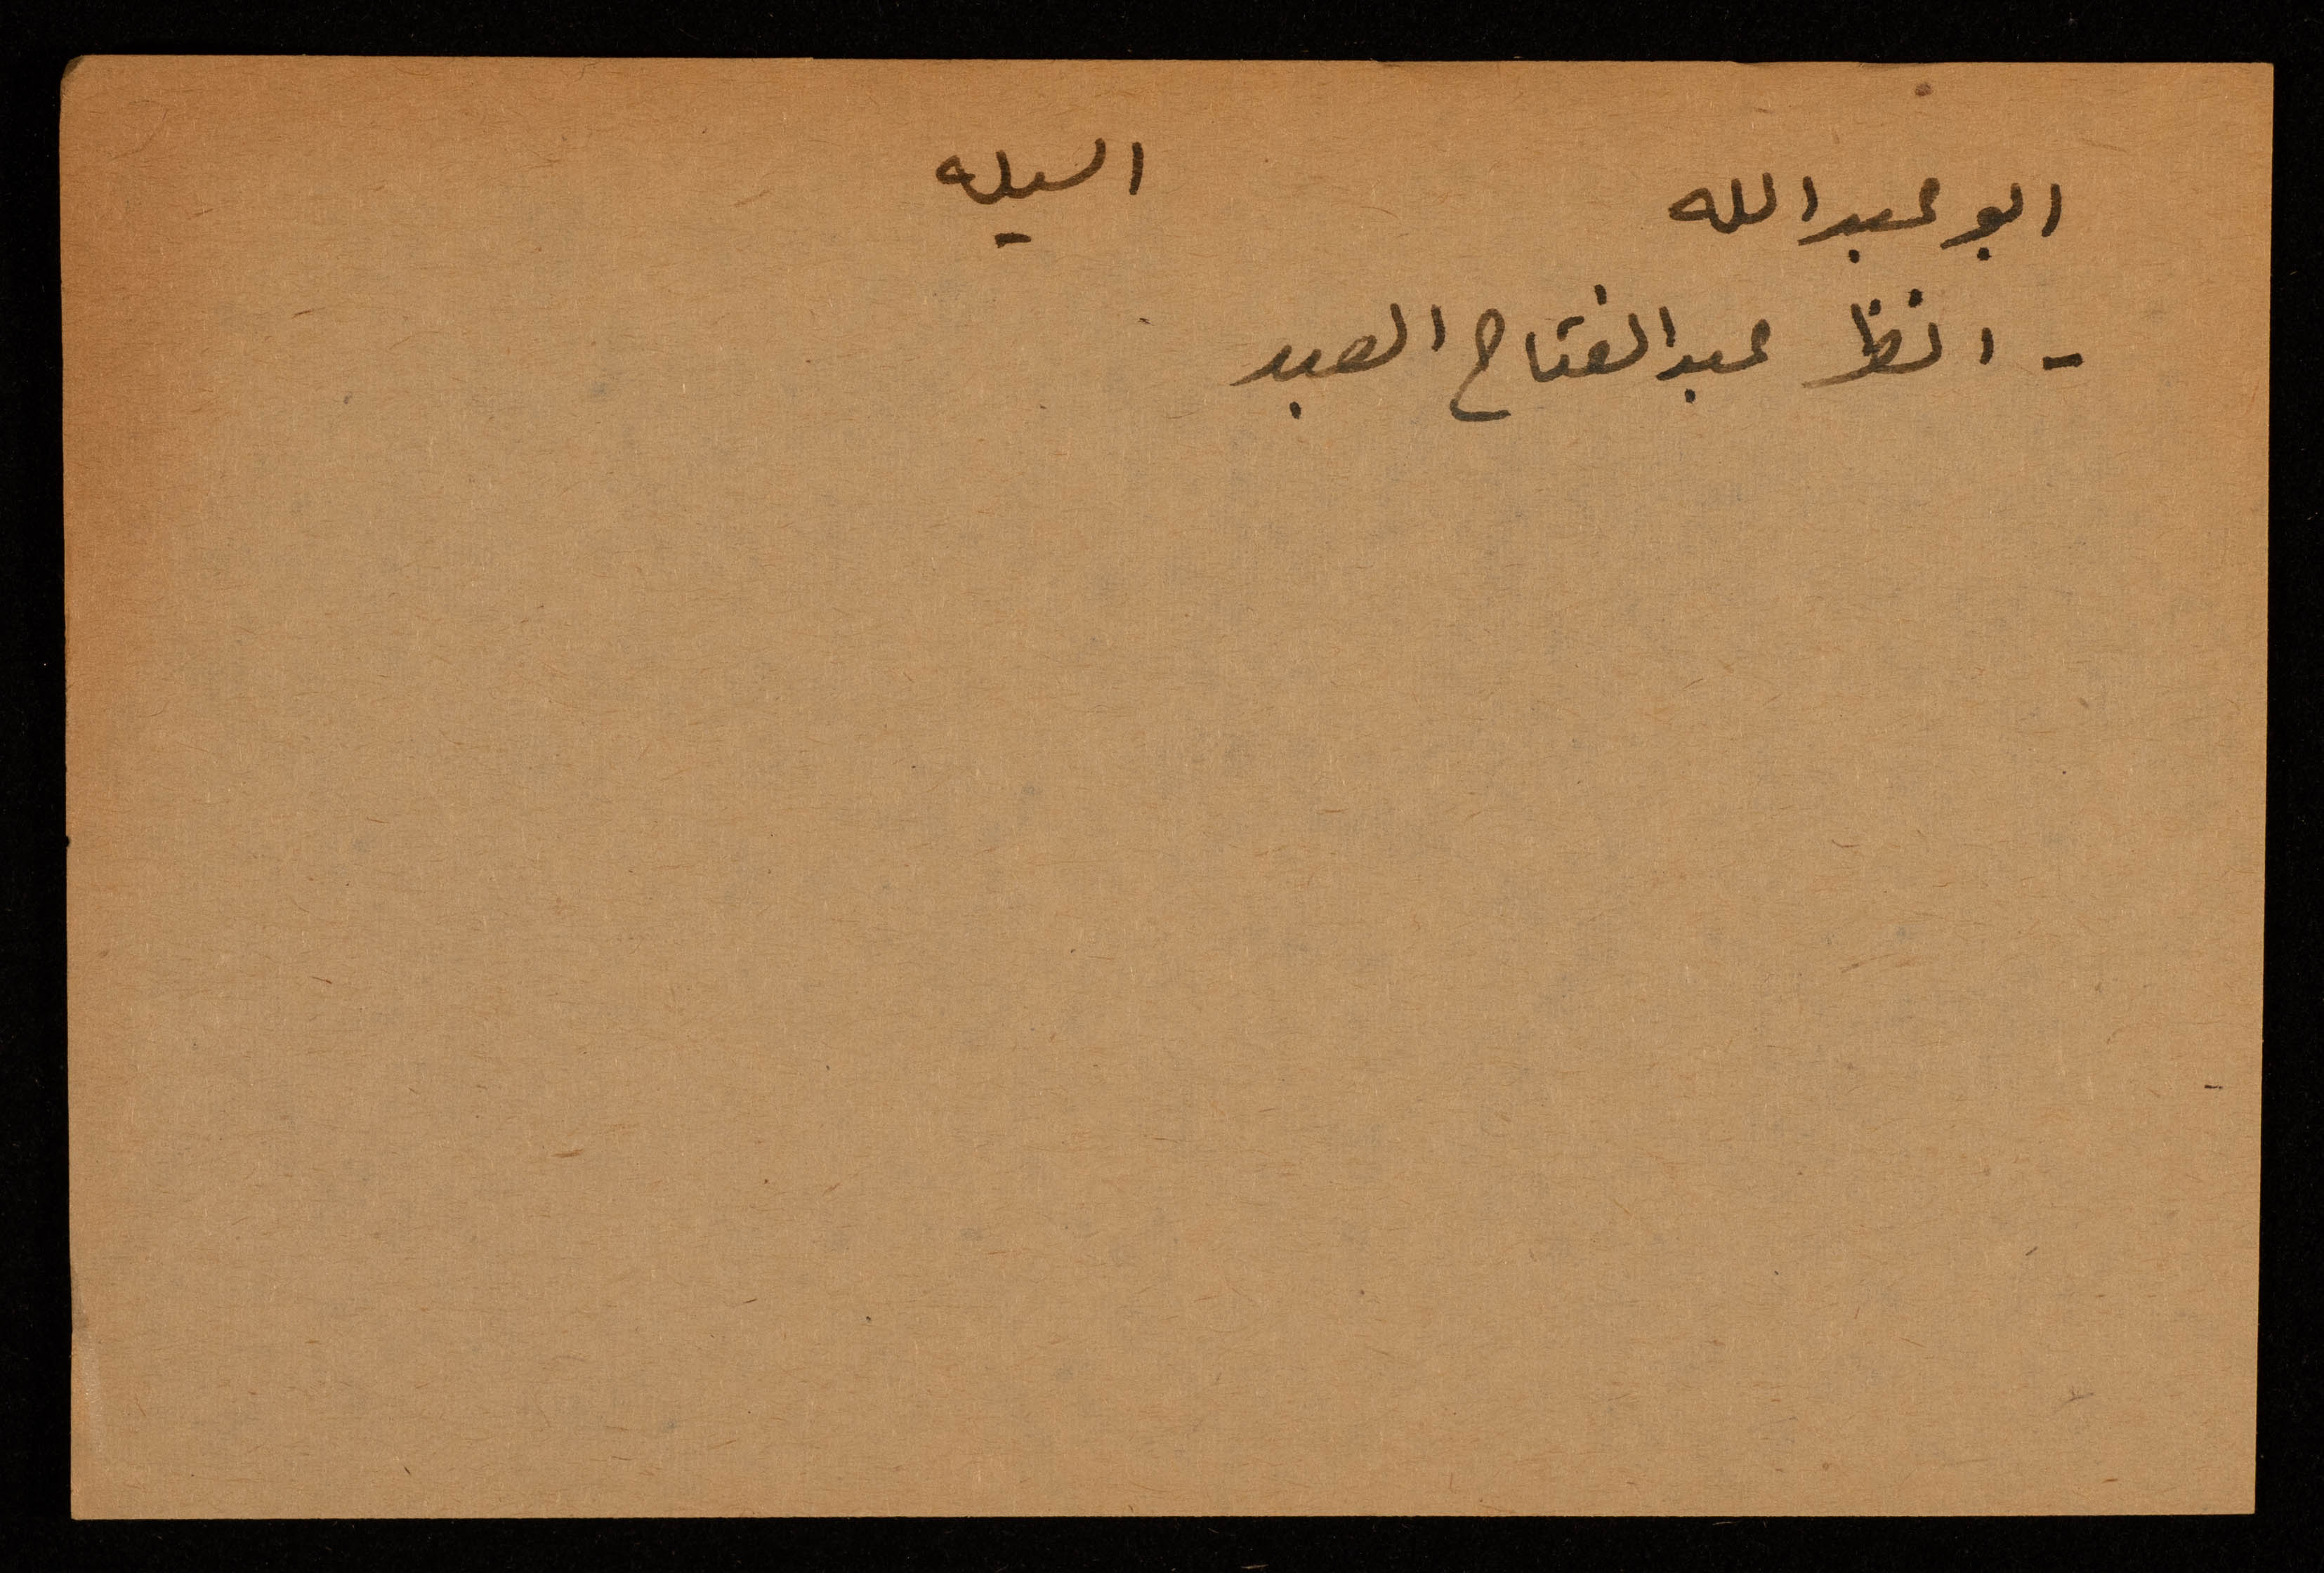 ابو عبدالله السيله
- انظر عبدالفتاح العبد